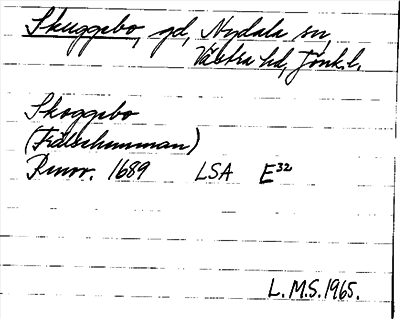 Skuggebo, gd, Nydala sn
Västra hd, Jönk.l.
Skoggebo
(Frälsehemman)
Renov. 1689 LSA E32
L.M.S. 1965.